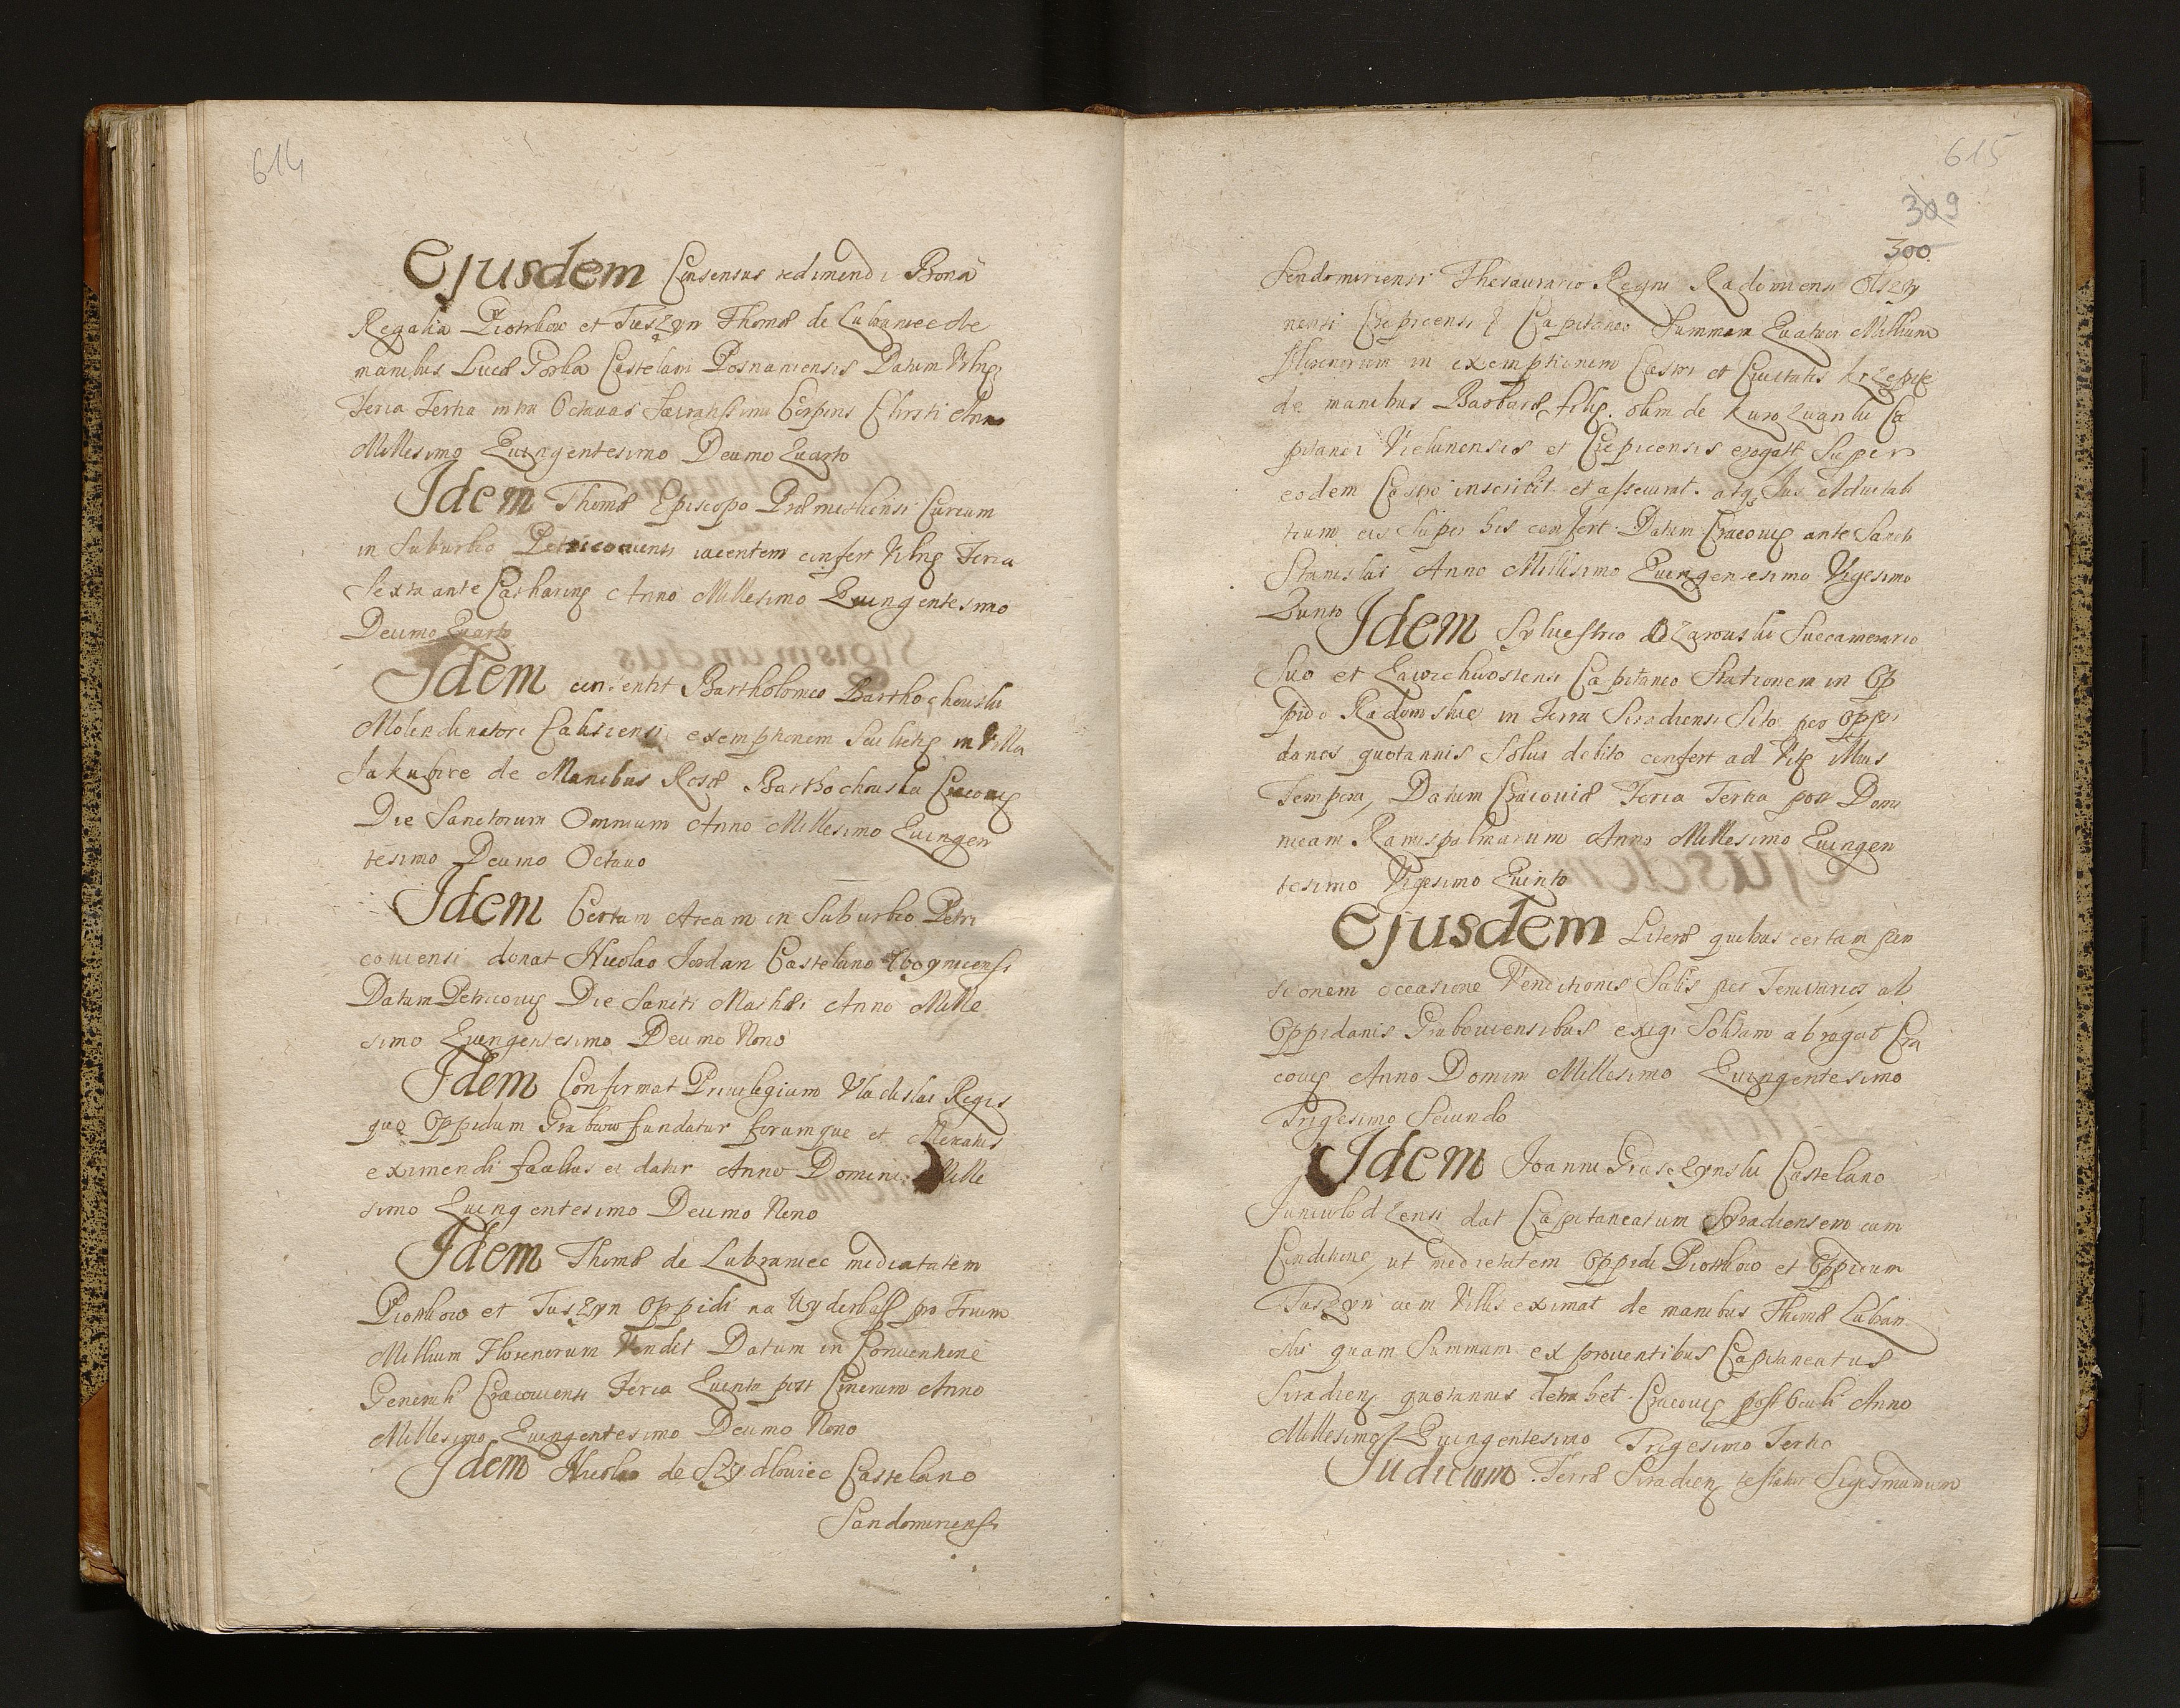 614
Ejusdem Consensus redimendi Bona
Regalia Piotrkow et Tuszyn Thomæ de Lubraniec de
manibus Lucæ Gorka Castelani Posnaniensis Datum Vilnę
Feria Tertia intra Octavas Sacratissimi Corporis Christi Anno
Millesimo Quingentesimo Decimo Quarto
Idem Thomæ Episcopo Præmisliensi Curiam
in Suburbio Petricoviensi iacentem confert Vilnę Feria
Sexta ante Catharinę Anno Millesimo Quingentesimo
Decimo Quarto
Idem consentit Bartholomeo Barthochowski
Molendinatori Calisiensi exemptionem Scultetię in Villa
Jakubice de Manibus Rosæ Barthochowska Cracovię
Die Sanctorum Omnium Anno Millesimo Quingen
tesimo Decimo Octavo
Idem Certam Aream in Suburbio Petri
coviensi donat Nicolao Jordan Castelano Woynicensi
Datum Petricovię Die Sancti Mathæi Anno Mille
simo Quingentesimo Decimo Nono
Idem Confirmat Privilegium Vladislai Regis
quo Oppidum Grabow fundatur forumque et Mercatus
eximendi facultas ei datur Anno Domini Mille
simo Quingentesimo Decimo Nono
Idem Thomæ de Lubraniec medietatem
Piotrkow et Tuszyn Oppidi na Wyderkaff pro Trium
Millium Florenorum Vendit Datum in Conventione
Generali Cracoviensi Feria Quinta post Cinerum Anno
Millesimo Quingentesimo Decimo Nono
Idem Nicolao de Szydlowiec Castelano
Sandomiriensi
615
309
300
Sendomiriensi Thesaurario Regni Radomiensi Olszty
nensi Crepicensi Capitaneo Summam Quatuor Millium
Florenorum in exemptionem Castri et Civitatis Krzepice
de manibus Barbaræ filię olim de Kurozwanki Ca
pitanei Vielunensis et Crepicensis erogatt Super
eodem Castro inscribit et assecurat atq Jus Advitali
tium eis super his confert Datum Cracovię ante Sancti
Stanislai Anno Millesimo Quingentesimo Vigesimo
Qunto
Idem Sylvestrio Ozarowski Succamerario
Suo et Zawichwostensi Capitaneo Stationem in Op
pido Radomskie in Terra Siradiensi Sito per Oppi
danos quotannis Solui debito confert ad Vitę illius
Tempora, Datum Cracoviæ Feria Tertia post Domi
nicam Ramispalmarum Anno Millesimo Quingen
tesimo Vigesimo Quinto
Ejusdem Literæ quibus certam pen
sionem occasione Venditionis Salis per Tenutarios ab
Oppidanis Graboviensibus exigi Solitam abrogat Cra
covię Anno Domini Millesimo Quingentesimo
Trigesimo Secundo
Idem Joanni Gruszczynski Castelano
Juniwlodzensi dat Capitaneatum Syradiensem cum
Conditione, ut medietatem Oppidi Piotrkow et Oppidum
Tuszyn cum Villis eximat de manibus Thomæ Lubran
ski quam Summam ex proventibus Capitaneatus
Siradien quotannis detrahet Cracovię post Oculi Anno
Millesimo Quingentesimo Trigesimo Tertio
Judicium Terræ Siradien testatur Sigismundum